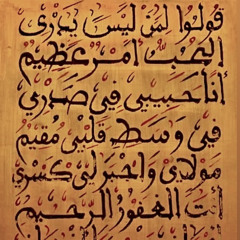 قولوا لمن ليس يدري
الحب امر عظيم
أنا حبيبي في صدري
في وسط قلبي مقيم
مولاي واجبر لي كسري
أنت الغفور الرحيم